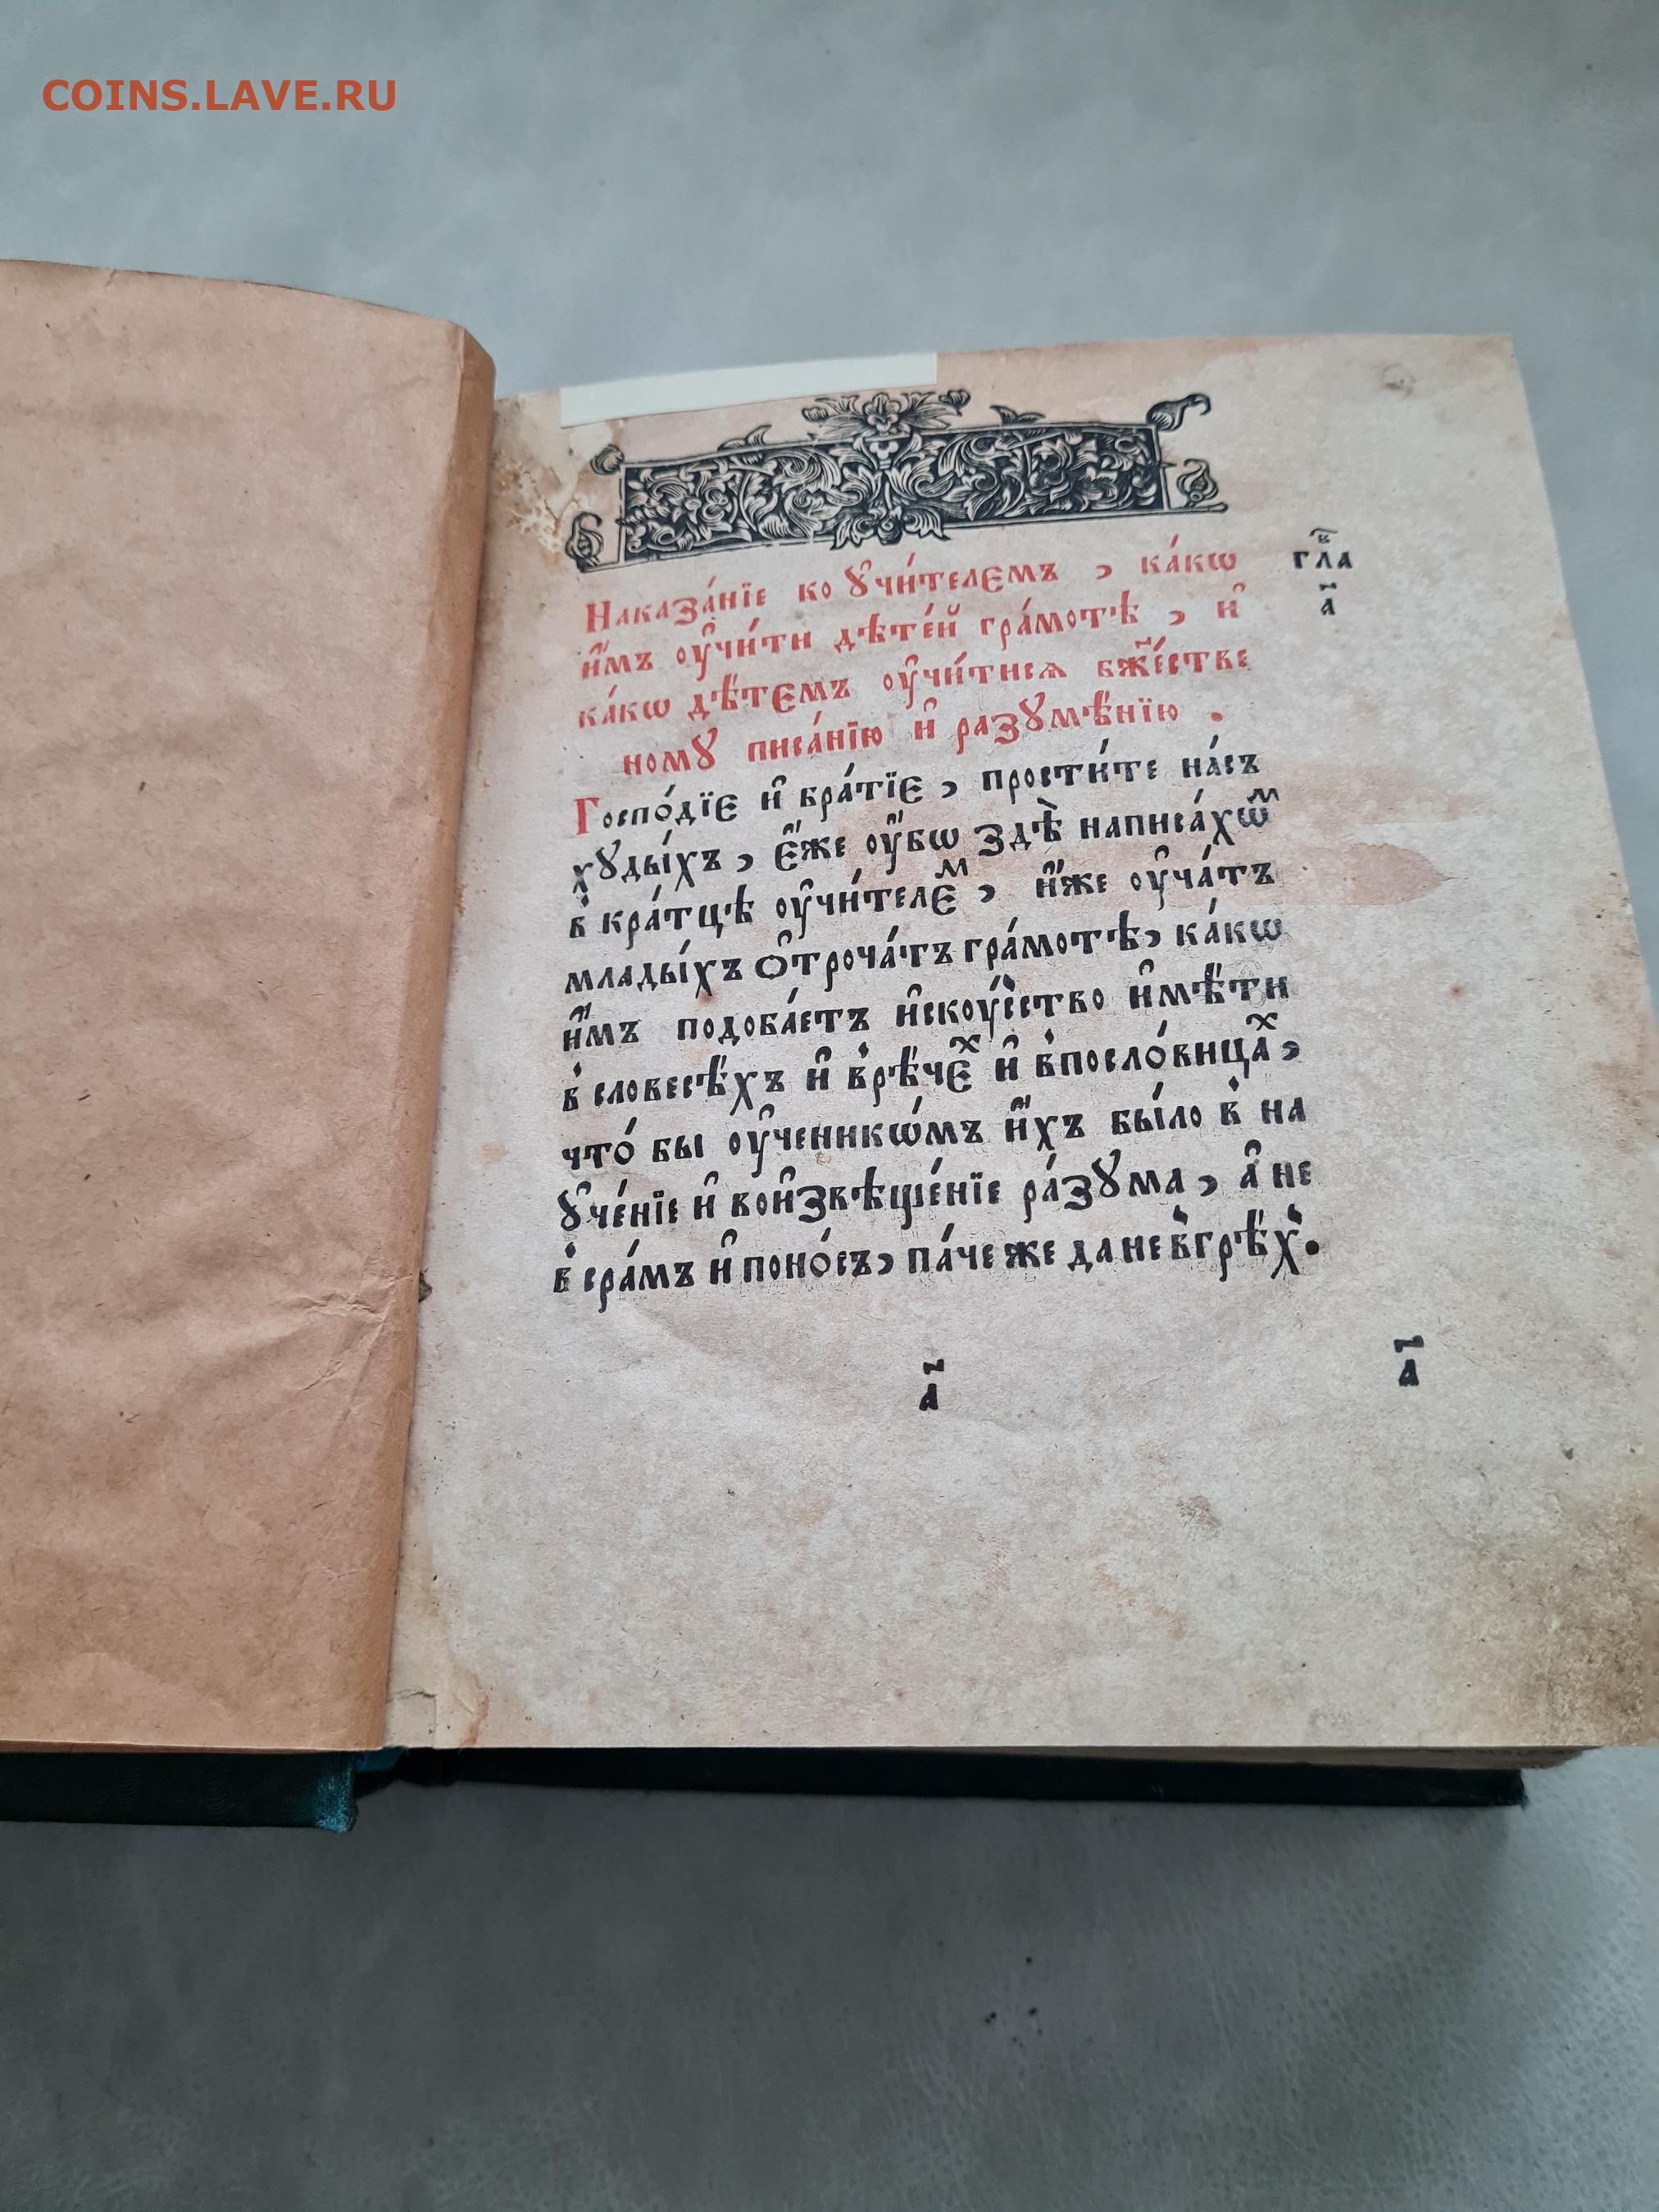 COINS.LAVE.RU
Наказа́нїе ко ᲂу҆чи́телємъ , ка́кѡ
и҆̀мъ ᲂу҆чи́ти дѣте́й гра́мотѣ , и҆
ка́кѡ дѣ́тємъ ᲂу҆чи́тисѧ бж҃е́стве
номꙋ писа́нїю и҆ разꙋмѣ́нїю .
гла в҃
а҃
Госпо́дїє и҆ бра́тїє , прости́те на́съ
хꙋды́хъ , є҆́же ᲂу҆́бѡ здѣ̀ написа́хѡⷨ
в кра́тцѣ ᲂу҆чи́телєⷨ , и҆́же ᲂу҆ча́тъ
млады́хъ ѻ҆троча́тъ гра́мотѣ, ка́кѡ
и҆̀мъ подоба́етъ и҆скоу́ство и҆мѣ́ти
в словесѣ́хъ и҆ врѣ́чєⷯ и҆ впосло́вицаⷯ,
что́ бы ᲂу҆ченикѡ́мъ и҆́хъ бы́ло в на
ᲂу҆че́нїе и҆ вои҆звѣще́нїе ра́зꙋма , а҆ не
в сра́мъ и҆ поно́съ, па́че же да не вгрѣ́х.
а҃
а҃